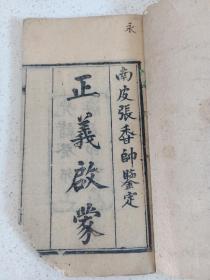 永
南皮張香帥鑒定
正義啟蒙